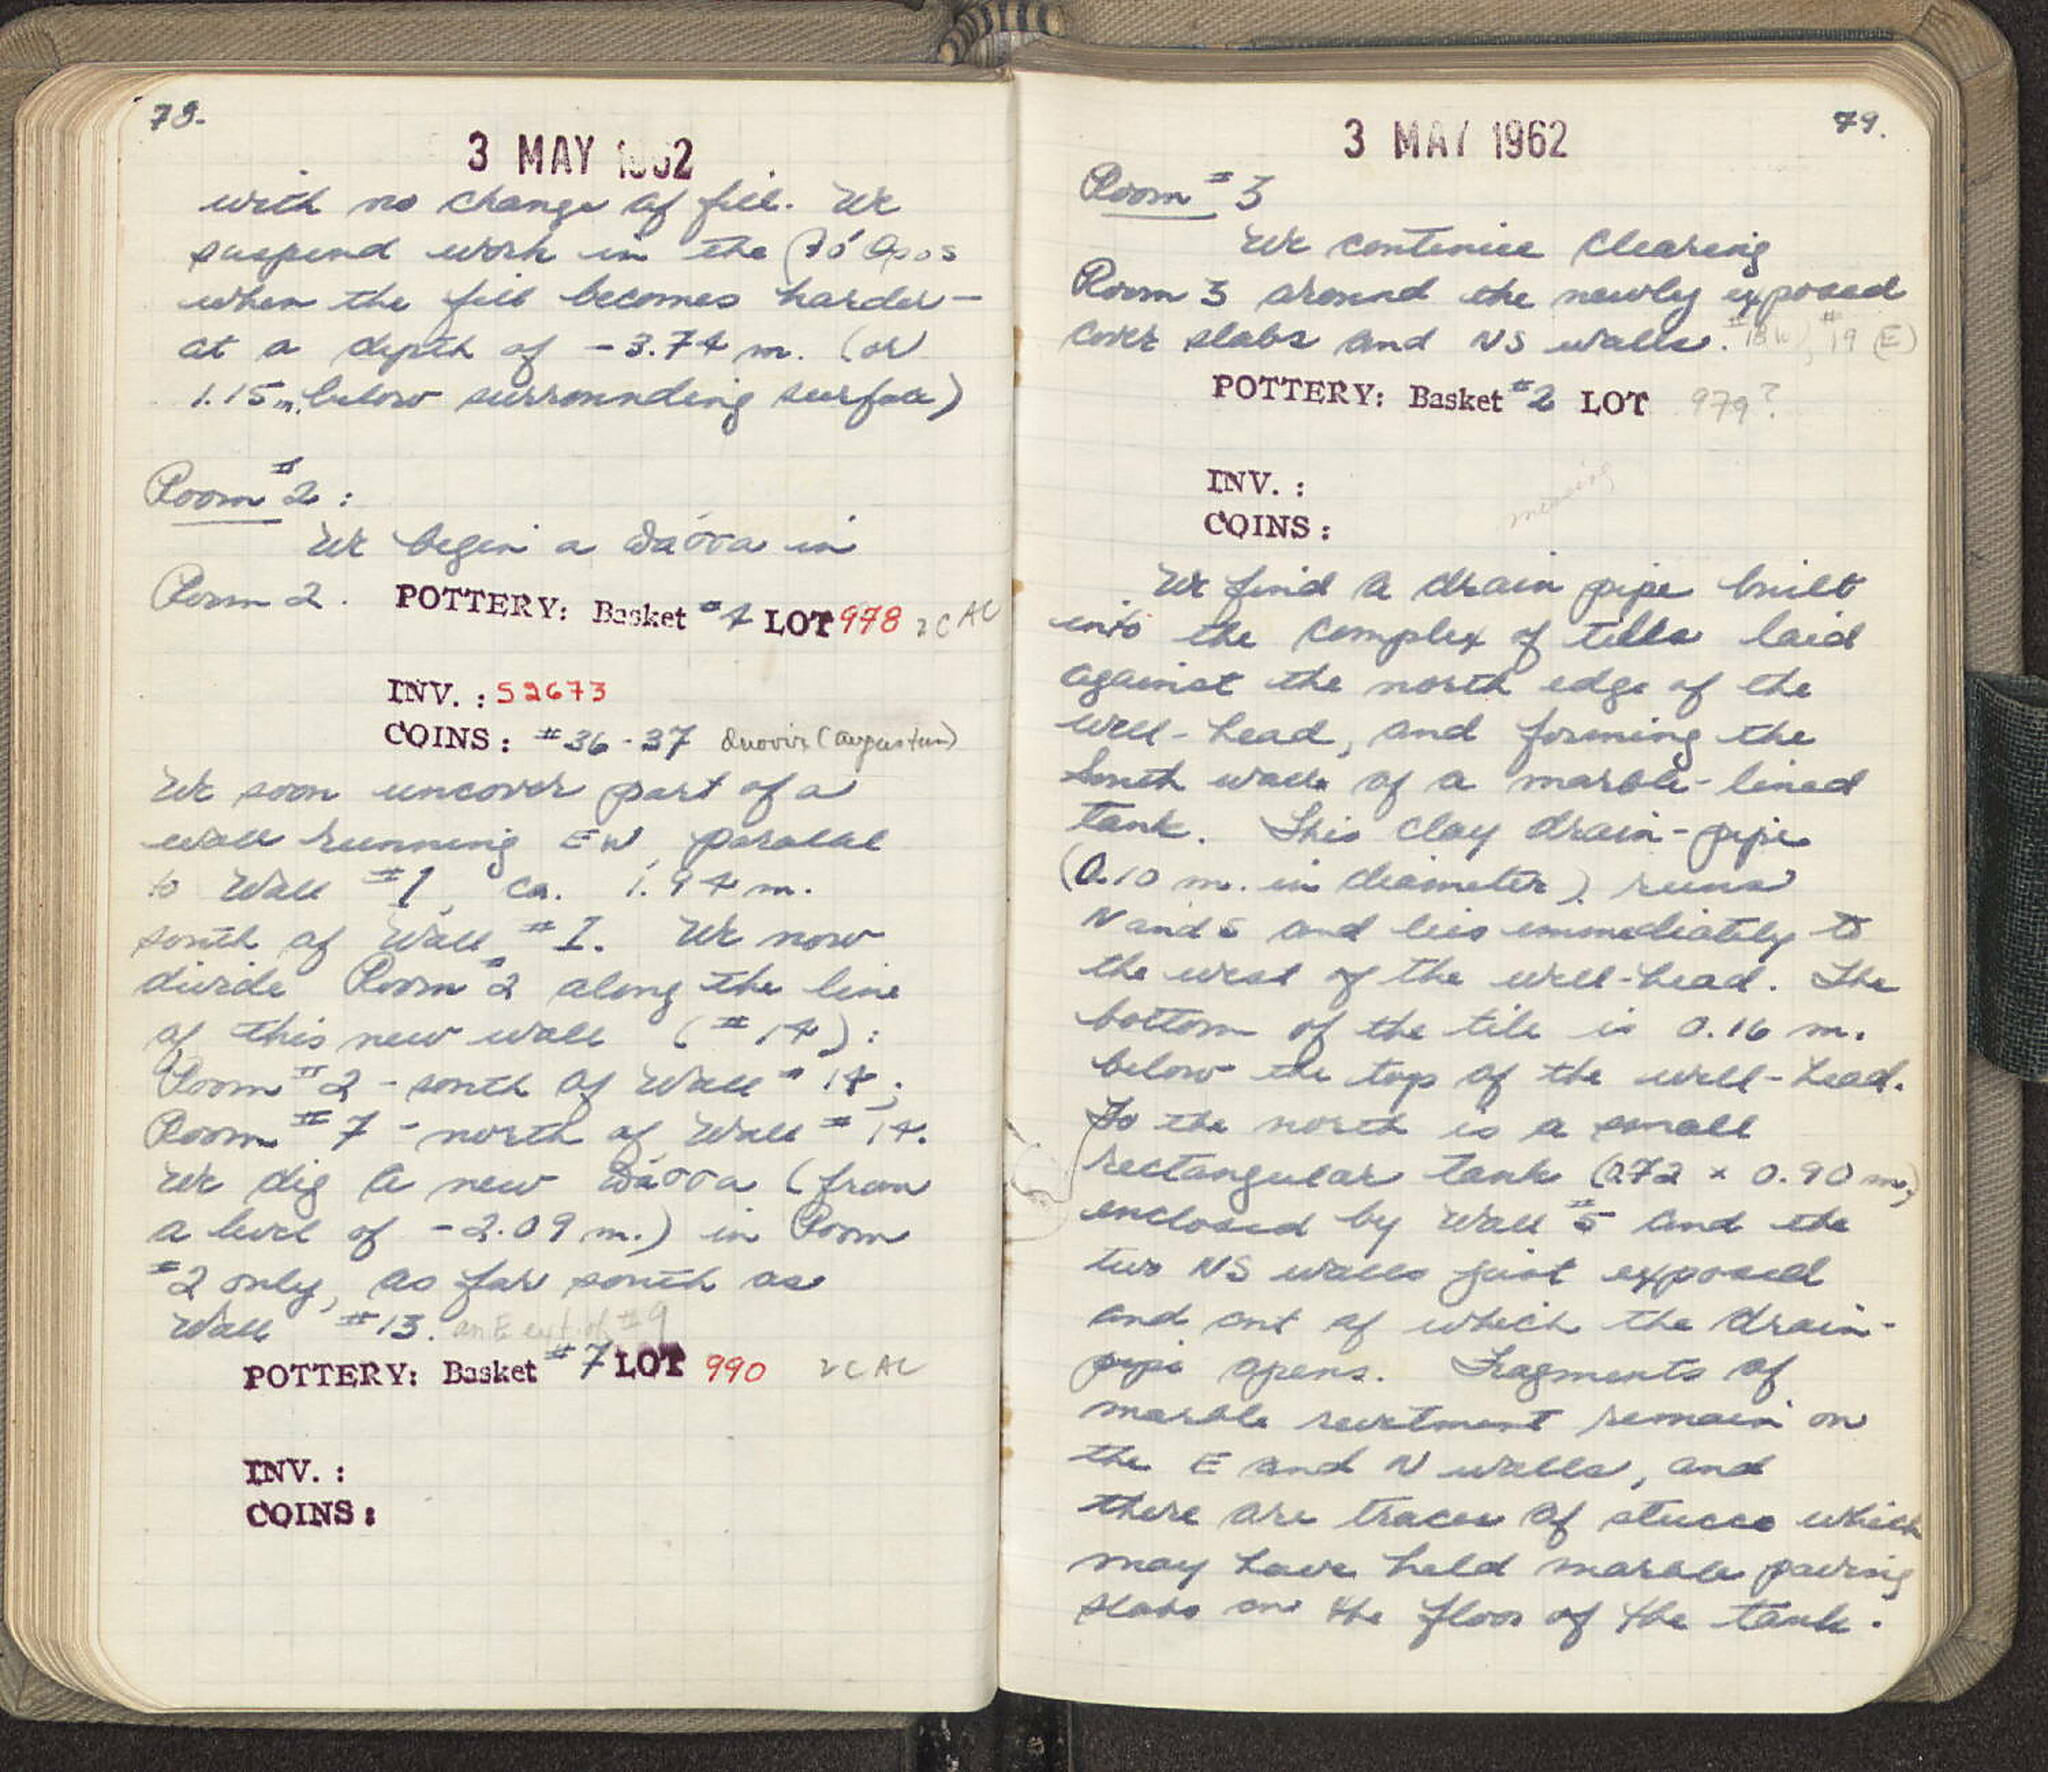 78.
3 MAY 1962
with no change of fill. We
suspend work in the βόθρος
when the fill becomes harder –
at a depth of -3.74 m. (or
1.15 m. below surrounding surface)
Room #2:
We begin a πάσσα in
Room 2. POTTERY: Basket #4 LOT 978 2C AC
INV. : 52673
COINS: #36-37 Duovir (Augustan)
We soon uncover part of a
wall running EW, paralal
to Wall #1, ca. 1.94 m.
south of Wall #1. We now
divide Room #2 along the line
of this new wall (#14):
Room #2 - south of Wall #14;
Room #7 - north of Wall #14.
We dig a new πάσσα (from
a level of -2.09 m.) in Room
#2 only, as far south as
Wall #13. an E ext. of #9
POTTERY: Basket #7 LOT 990 2C AC
INV. :
COINS:
79.
3 MAY 1962
Room #3
We continue clearing
Room 3 around the newly exposed
cover slabs and NS walls. #18 W, #19 (E)
POTTERY: Basket #2 LOT 979?
INV. :
missing
COINS:
We find a drain pipe built
into the complex of tiles laid
against the north edge of the
well-head, and forming the
South wall of a marble-lined
tank. This clay drain-pipe
(0.10 m. in diameter) runs
N and S and lies immediately to
the west of the well-head. The
bottom of the tile is 0.16 m.
below the top of the well-head.
To the north is a small
rectangular tank (0.72 x 0.90 m.)
enclosed by Wall #5 and the
two NS walls just exposed
and out of which the drain-
pipe opens. Fragments of
marble revetment remain on
the E and N walls, and
there are traces of stucco which
may have held marble paving
slabs on the floor of the tank.